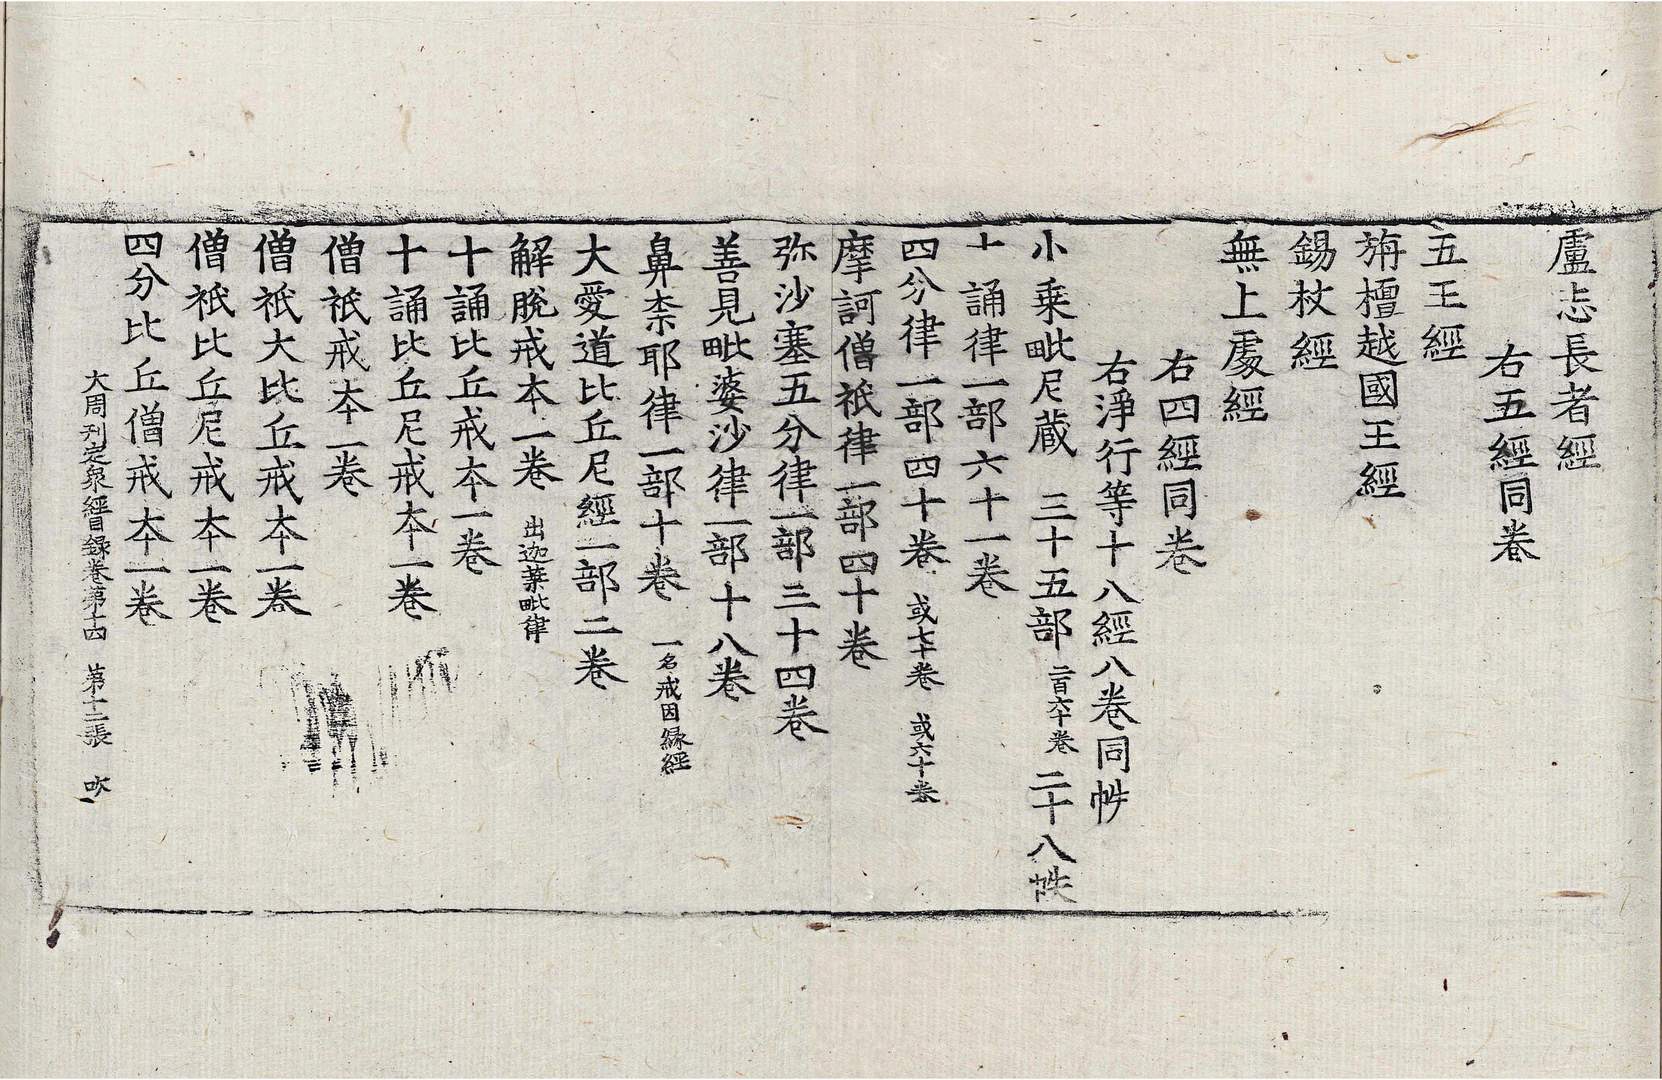 盧志長者經
右五經同卷
五王經
旃檀越國王經
錫杖經
無上處經
右四經同卷
右淨行等十八經八卷同帙
小乗毗尼蔵　三十五部 二百六十卷 二十八帙
十誦律一部六十一卷
四分律一部四十卷 或七十卷 或六十卷
摩訶僧祇律一部四十卷
弥沙塞五分律一部三十四卷
善見毗婆沙律一部十八卷
鼻柰耶律一部十卷 一名戒因縁經
大愛道比丘尼經一部二卷
解脫戒夲一卷 出迦葉毗律
十誦比丘戒夲一卷
十誦比丘尼戒夲一卷
僧祇戒夲一卷
僧祇大比丘戒夲一卷
僧祇比丘尼戒夲一卷
四分比丘僧戒夲一卷
大周刊定衆經目録卷第十四　第十二張　吹